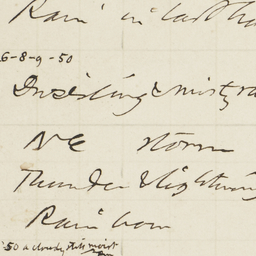 Rain in last
6-8-9-50
Drizzling & misty
NE storm
Thunder & lightning
Rain bow
'50 a cloudy still moist